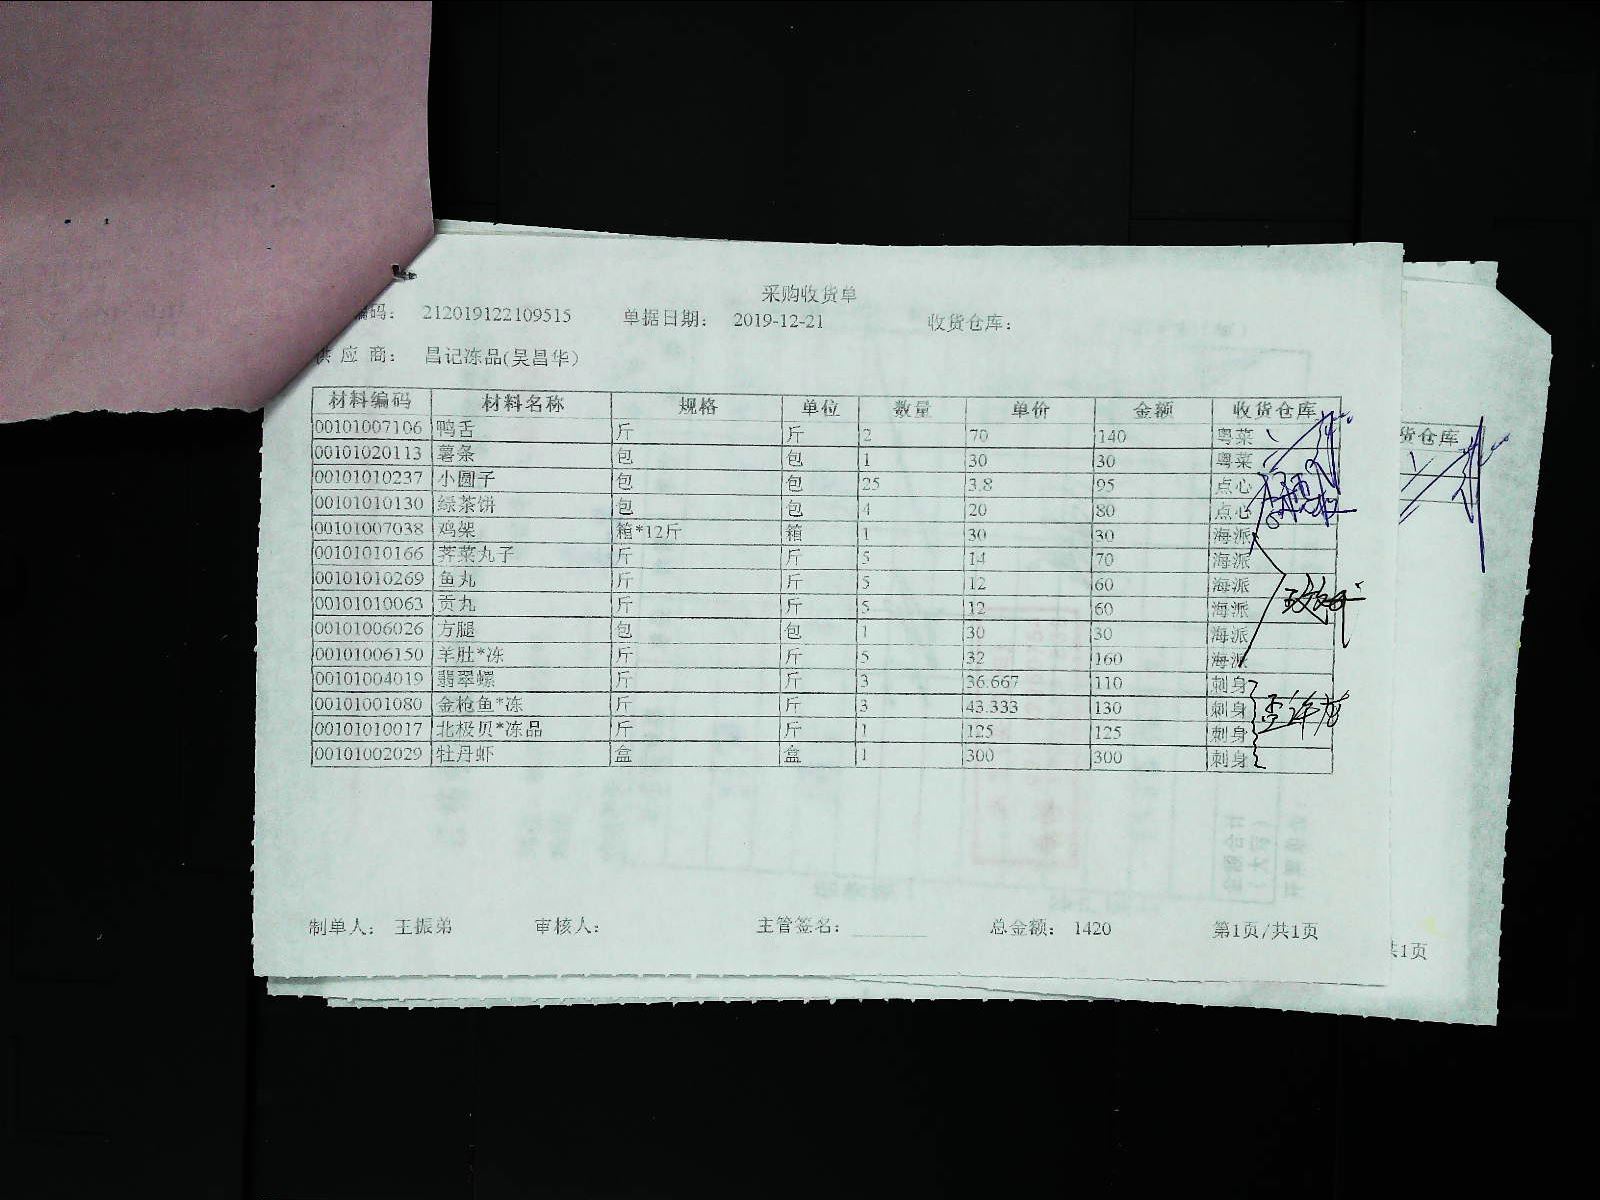 采购收货单
编码: 212019122109515 单据日期: 2019-12-21 收货仓库:
供 应 商: 昌记冻品(吴昌华)
材料编码 材料名称 规格 单位 数量 单价 金额 收货仓库
00101007106 鸭舌 斤 斤 2 70 140 粤菜
00101020113 薯条 包 包 1 30 30 粤菜
00101010237 小圆子 包 包 25 3.8 95 点心
00101010130 绿茶饼 包 包 4 20 80 点心
00101007038 鸡架 箱*12斤 箱 1 30 30 海派
00101010166 荠菜丸子 斤 斤 5 14 70 海派
00101010269 鱼丸 斤 斤 5 12 60 海派
00101010063 贡丸 斤 斤 5 12 60 海派
00101006026 方腿 包 包 1 30 30 海派
00101006150 羊肚*冻 斤 斤 5 32 160 海派
00101004019 翡翠螺 斤 斤 3 36.667 110 刺身
00101001080 金枪鱼*冻 斤 斤 3 43.333 130 刺身
00101010017 北极贝*冻品 斤 斤 1 125 125 刺身
00101002029 牡丹虾 盒 盒 1 300 300 刺身
制单人: 王振弟 审核人: 主管签名: 总金额: 1420 第1页/共1页
货仓库
共1页